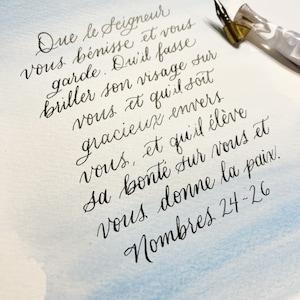 Que le Seigneur
vous bénisse et vous
garde. Qu'il fasse
briller son visage sur
vous et qu'il soit
gracieux envers
vous, et qu'il élève
sa bonté sur vous et
vous donne la paix.
Nombres 24-26